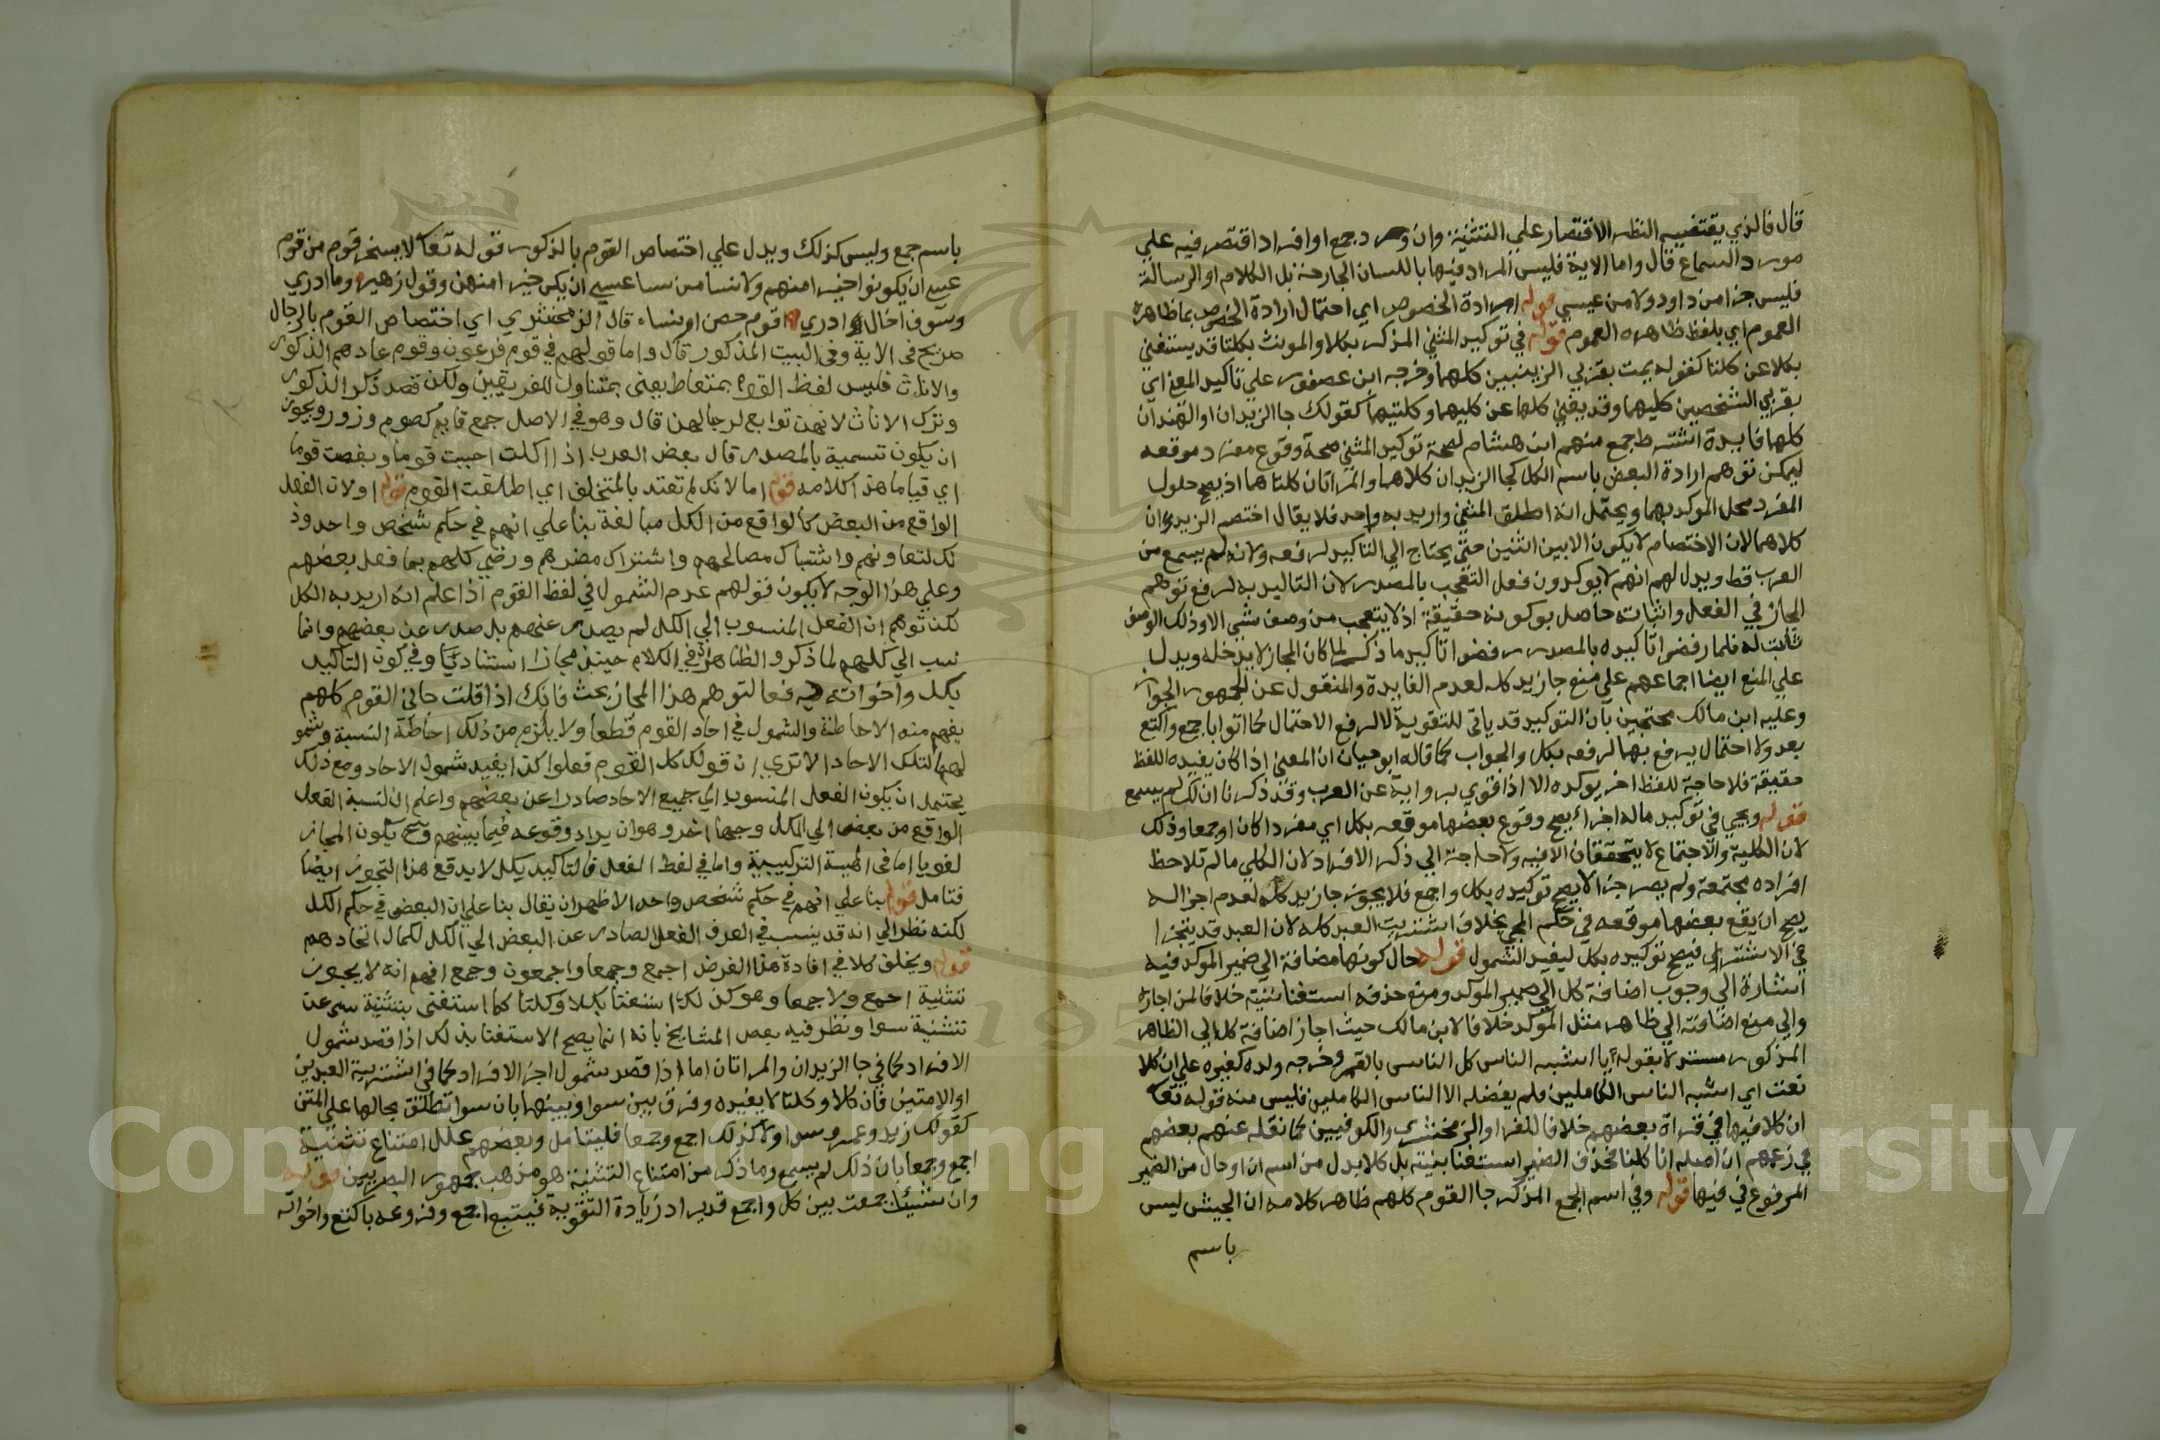 قال فالذي يقتضيه النظر الاقتصار علي التثنية وان ورد جمع او افراد اقتصر فيه علي
مورد السماع قال واما الاية فليس المراد فيها باللسان الجارحة بل الكلام او الرسالة
فليس جزا من داود ولا من عيسي قوله ارادة الخصوص اي احتمال ارادة الخصوص بما ظاهره
العموم اي بلفظ ظاهره العموم قوله في توكيد المثني المذكر بكلا والمونث بكلتا قد يستغني
بكلا عن كلتا كقوله يمت بقربي الزينبين كلهما وخرجه ابن عصفور علي تاكيد المعني اي
بقربي الشخصين كليهما وقد يغني كلها عن كليهما وكلتيهما كقولك جا الزيدان او الهندان
كلها فايدة اشترط جمع منهم ابن هشام لصحة توكيد المثني صحة وقوع مفرد موقعه
ليمكن توهم ارادة البعض باسم الكل كجا الزيدان كلاهما والمراتان كلتاهما اذ يصح حلول
المفرد محل الموكد بهما ويحتمل انه اطلق المثني واريد به واحد فلا يقال اختصم الزيدان
كلاهما لان الاختصام لا يكون الا بين اثنين حتي يحتاج الي التاكيد لرفعه ولانه لم يسمع من
العرب قط ويدل لهم انهم لا يوكدون فعل التعجب بالمصدر لان التاكيد به لرفع توهم
المجاز في الفعل واثباته حاصل بوكونه حقيقة اذ لا يتعجب من وصف شي الا وذلك الوصف
ثابت له فلما رفضوا تاكيده بالمصدر رفضوا تاكيد ما ذكر لما كان المجاز لا يدخله ويدل
علي المنع ايضا اجماعهم علي منع جا زيد كله لعدم الفايدة والمنقول عن الجمهور الجواز
وعليه ابن مالك محتجين بان التوكيد قد ياتي للتقوية لا لرفع الاحتمال كما اتوا باجمع واكتع
بعد ولا احتمال يرفع بهما لرفعه بكل والجواب كما قاله ابو حيان ان المعني اذا كان يفيده اللفظ
حقيقة فلا حاجة للفظ اخر يوكده الا اذا قوي برواية عن العرب وقد ذكرنا ان ذلك لم يسمع
قوله ويجي في توكيد ماله اجزاء يصح وقوع بعضها موقعه بكل اي مفردا كان او جمعا وذلك
لان الكلية والاجتماع لا يتحققان الا فيه ولا حاجة الي ذكر الافراد لان الكلي ما لم تلاحظ
افراده مجتمعة ولم يصر جزا لا يصح توكيده بكل واجمع فلا يجوز جا زيد كله لعدم اجزا له
يصح ان يقع بعضها موقعه في حكم المجي بخلاف اشتريت العبد كله لان العبد قد يتجزا
في الاشتراي فيصح توكيده بكل ليفيد الشمول قوله حال كونها مضافة الي ضمير الموكد فيه
اشارة الي وجوب اضافة كل الي ضمير الموكد ومنع حذفه استغنا بنيته خلافا لمن اجازه
والي منع اضافته الي ظاهر مثل الموكد خلافا لابن مالك حيث اجاز اضافة كل الي الظاهر
المذكور مستدلا بقوله يا اشبه الناس كل الناس بالقمر وخرجه ولده كغيره علي ان كلا
نعت اي اشبه الناس الكاملين فلم يفضله الا الناس الكاملين فليس منه قوله تعا
ان كلا فيها في قراة بعضهم خلافا للفرا والزمخشري والكوفيين كما نقله عنهم بعضهم
في زعمهم ان اصله انا كلنا فحذف الضمير استغنا بنيته بل كلا بدل من اسم ان او حال من الضمير
المرفوع في فيها قوله وفي اسم الجمع المذكر جا القوم كلهم ظاهر كلامه ان الجيش ليس
باسم
باسم جمع وليس كذلك ويدل علي اختصاص القوم بالذكور قوله تعا لا يسخر قوم من قوم
عسي ان يكونوا خيرا منهم ولا نسا من نسا عسي ان يكن خيرا منهن وقول زهير وما ادري
وسوف اخال ادري اقوم حصن او نساء قال الزمخشري اي اختصاص القوم بالرجال
صريح في الاية وفي البيت المذكور قال واما قولهم في قوم فرعون وقوم عاد هم الذكور
والاناث فليس لفظ القوم بمتعاط يعني بمتناول للفريقين ولكن قصد ذكر الذكور
وترك الاناث لانهن توابع لرجالهن قال وهو في الاصل جمع قايم كصوم وزور ويجوز
ان يكون تسمية بالمصدر قال بعض العرب اذا اكلت احببت قوما وبغضت قوما
اي قياما هذا كلامه قوله اما لانك لم تعتد بالمتخلف اي اطلقت القوم قوله او لان الفعل
الواقع من البعض كالواقع من الكل مبالغة بنا علي انهم في حكم شخص واحد وذ
لك لتعاونهم واشتباك مصالحهم واشتراك مضرهم ورضي كلهم بما فعل بعضهم
وعلي هذا الوجه لا يكون قولهم عدم الشمول في لفظ القوم اذا علم انه اريد به الكل
لكن توهم ان الفعل المنسوب الي الكل لم يصدر عنهم بل صدر عن بعضهم وانما
نسب الي كلهم لما ذكر والظاهر ان في الكلام حينئذ مجازا اسناديا وفي كون التاكيد
بكل واخواته دفعا لتوهم هذا المجاز بحث فانك اذا قلت جاني القوم كلهم
يفهم منه الاحاطة والشمول في احاد القوم قطعا ولا يلزم من ذلك احاطة النسبة وشمو
لها لتلك الاحاد الا تري ان قولك كل القوم فعلوا كذا يفيد شمول الاحاد ومع ذلك
يحتمل ان يكون الفعل المنسوب الي جميع الاحاد صادرا عن بعضهم واعلم ان لنسبة الفعل
الواقع من بعض الي الكل وجها اخر وهو ان يراد وقوعه فيما بينهم وح يكون المجاز
لغويا اما في الهيية التركيبية واما في لفظ الفعل فالتاكيد بكل لا يدفع هذا التجوز ايضا
فتامل قوله بنا علي انهم في حكم شخص واحد الاظهر ان يقال بنا علي ان البعض في حكم الكل
لكنه نظر الي انه قد ينسب في العرف الفعل الصادر عن البعض الي الكل لكمال اتحادهم
قوله ويخلف كلا في افادة هذا الغرض اجمع وجمعا واجمعون وجمع افهم انه لا يجوز
تثنية اجمع ولا جمعا وهو كذلك استغنا بكلا وكلتا كما استغني بتثنية سي عن
تثنية سوا ونظر فيه بعض المشايخ بانه انما يصح الاستغنا بذلك اذا قصد شمول
الافراد كما في جا الزيدان والمراتان اما اذا قصد شمول اجزا الافراد كما في اشتريت العبدين
او الامتين فان كلا وكلتا لا يفيده وفرق بين سوا وبينهما بان سوا تطلق بحالها علي المثني
كقولك زيد وعمرو سوا ولا كذلك اجمع وجمعا فليتامل وبعضهم علل امتناع تثنية
اجمع وجمعا بان ذلك لم يسمع وما ذكر من امتناع التثنية هو مذهب جمهور البصريين قوله
وان شئت جمعت بين كل واجمع قد يراد زيادة التقوية فيتبع اجمع وفروعه باكتع واخواته
Copyright © King Saud University